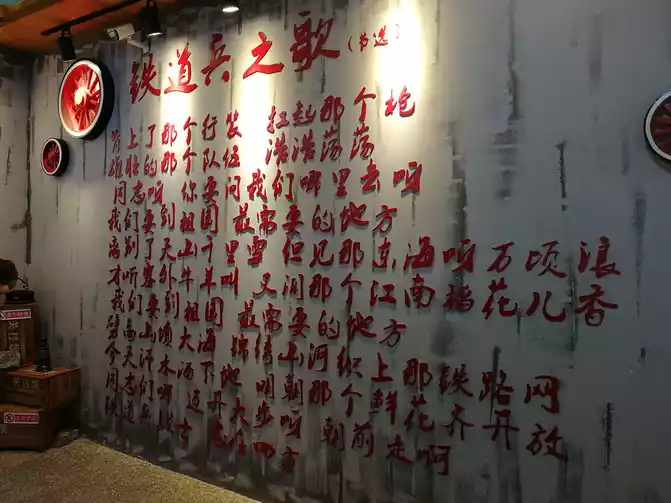 铁道兵之歌(节选)
背上了那个行装 扛起那个枪
雄壮的那个队伍 浩浩荡荡
同志呀你要问我们哪里去呀
我们要到祖国最需要的地方
离别了天山千里雪 但见那东海呀万顷浪
才听塞外牛羊叫 又闻那个江南稻花儿香
我们要到祖国最需要的地方
劈高山填大海 锦绣山河织上那铁路网
今天汗水下地 明朝那个鲜花齐开放
同志们迈开大步呀朝前走啊
铁道兵战士志在四方